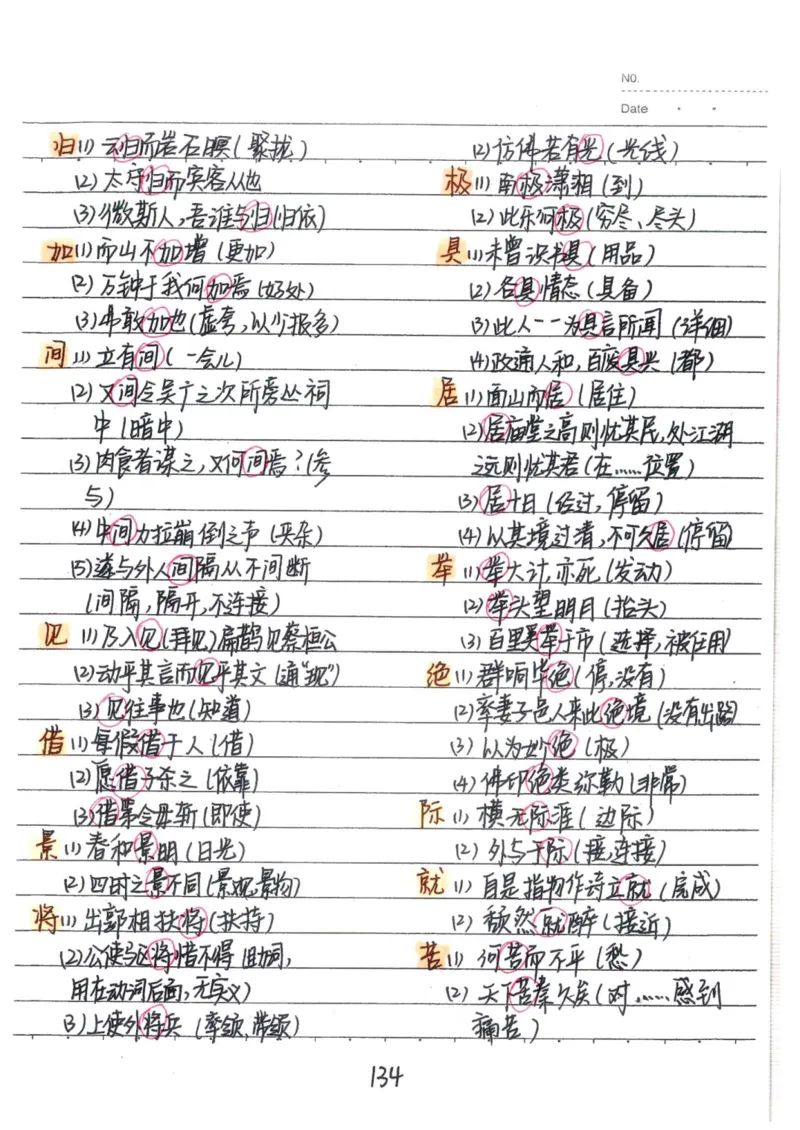 NO.
Date
归(1)云归而岩穴暝(聚拢)
(2)太守归而宾客从也
(3)微斯人,吾谁与归(归依)
加(1)而山不加增(更加)
(2)万钟于我何加焉(好处)
(3)弗敢加也(虚夸,以少报多)
间(1)立有间(一会儿)
(2)又间令吴广之次所旁丛祠
中(暗中)
(3)肉食者谋之,又何间焉?(参
与)
(4)中间力拉崩倒之声(夹杂)
(5)遂与外人间隔从不间断
(间隔,隔开,不连接)
见(1)及入见(拜见)扁鹊见蔡桓公
(2)动乎其言而见乎其文(通“现”)
(3)见往事也(知道)
借(1)每假借于人(借)
(2)愿借子杀之(依靠)
(3)借第令毋斩(即使)
景(1)春和景明(日光)
(2)四时之景不同(景观,景物)
将(1)出郭相扶将(扶持)
(2)公使马迈将惜不得(助词,
用在动词后面,无实义)
(3)上使外将兵(率领,带领)
(2)仿佛若有光(光线)
极(1)南极潇湘(到)
(2)此乐何极(穷尽、尽头)
具(1)未曾识书具(用品)
(2)各具情态(具备)
(3)此人一一为具言所闻(详细)
(4)政通人和,百废具兴(都)
居(1)面山而居(居住)
(2)居庙堂之高则忧其民,处江湖
之远则忧其君(在……位置)
(3)居十日(经过,停留)
(4)以其境过清,不可久居(停留)
举(1)举大计亦死(发动)
(2)举头望明月(抬头)
(3)百里奚举于市(选择,被任用)
绝(1)群响毕绝(停,没有)
(2)率妻子邑人来此绝境(没有出路)
(3)以为妙绝(极)
(4)佛印绝类弥勒(非常)
际(1)横无际涯(边际)
(2)外与天际(接,连接)
就(1)自是指物作诗立就(完成)
(2)颓然就醉(接近)
苦(1)何苦而不平(愁)
(2)天下苦秦久矣(对……感到
痛苦)
134